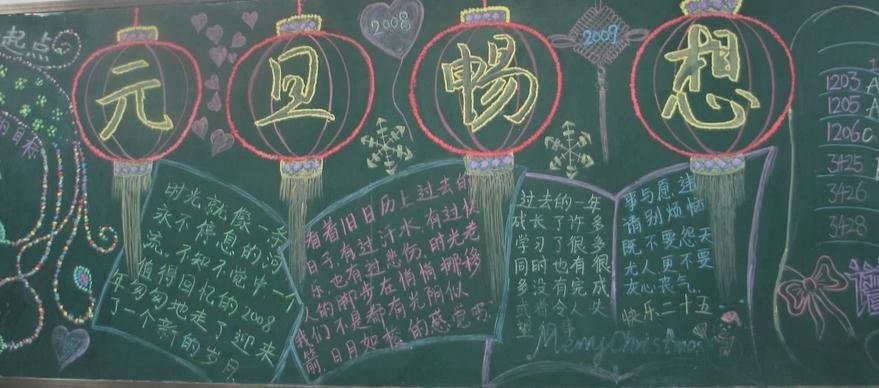 起点
的目标
元旦畅想
2008
2009
时光就像一条
永不停息的河
流。不知不觉中一个
值得回忆的2008
年匆匆地走了迎来
了一个新的岁月
看着旧日历上过去的
日子有过汗水,有过快
乐也有过悲伤,时光老
人的脚步在悄悄挪移
我们不是都有光阴似
箭,日月如梭的感觉吗
过去的一年
成长了许多
学习了很多
同时也有很
多没有完成
或着令人失
望
事与愿违
请别烦恼
既不要怨天
尤人更不要
灰心丧气、
快乐二十五
Merry Christmas
1203 A
1205 A
1206 C
3425
3426
3428